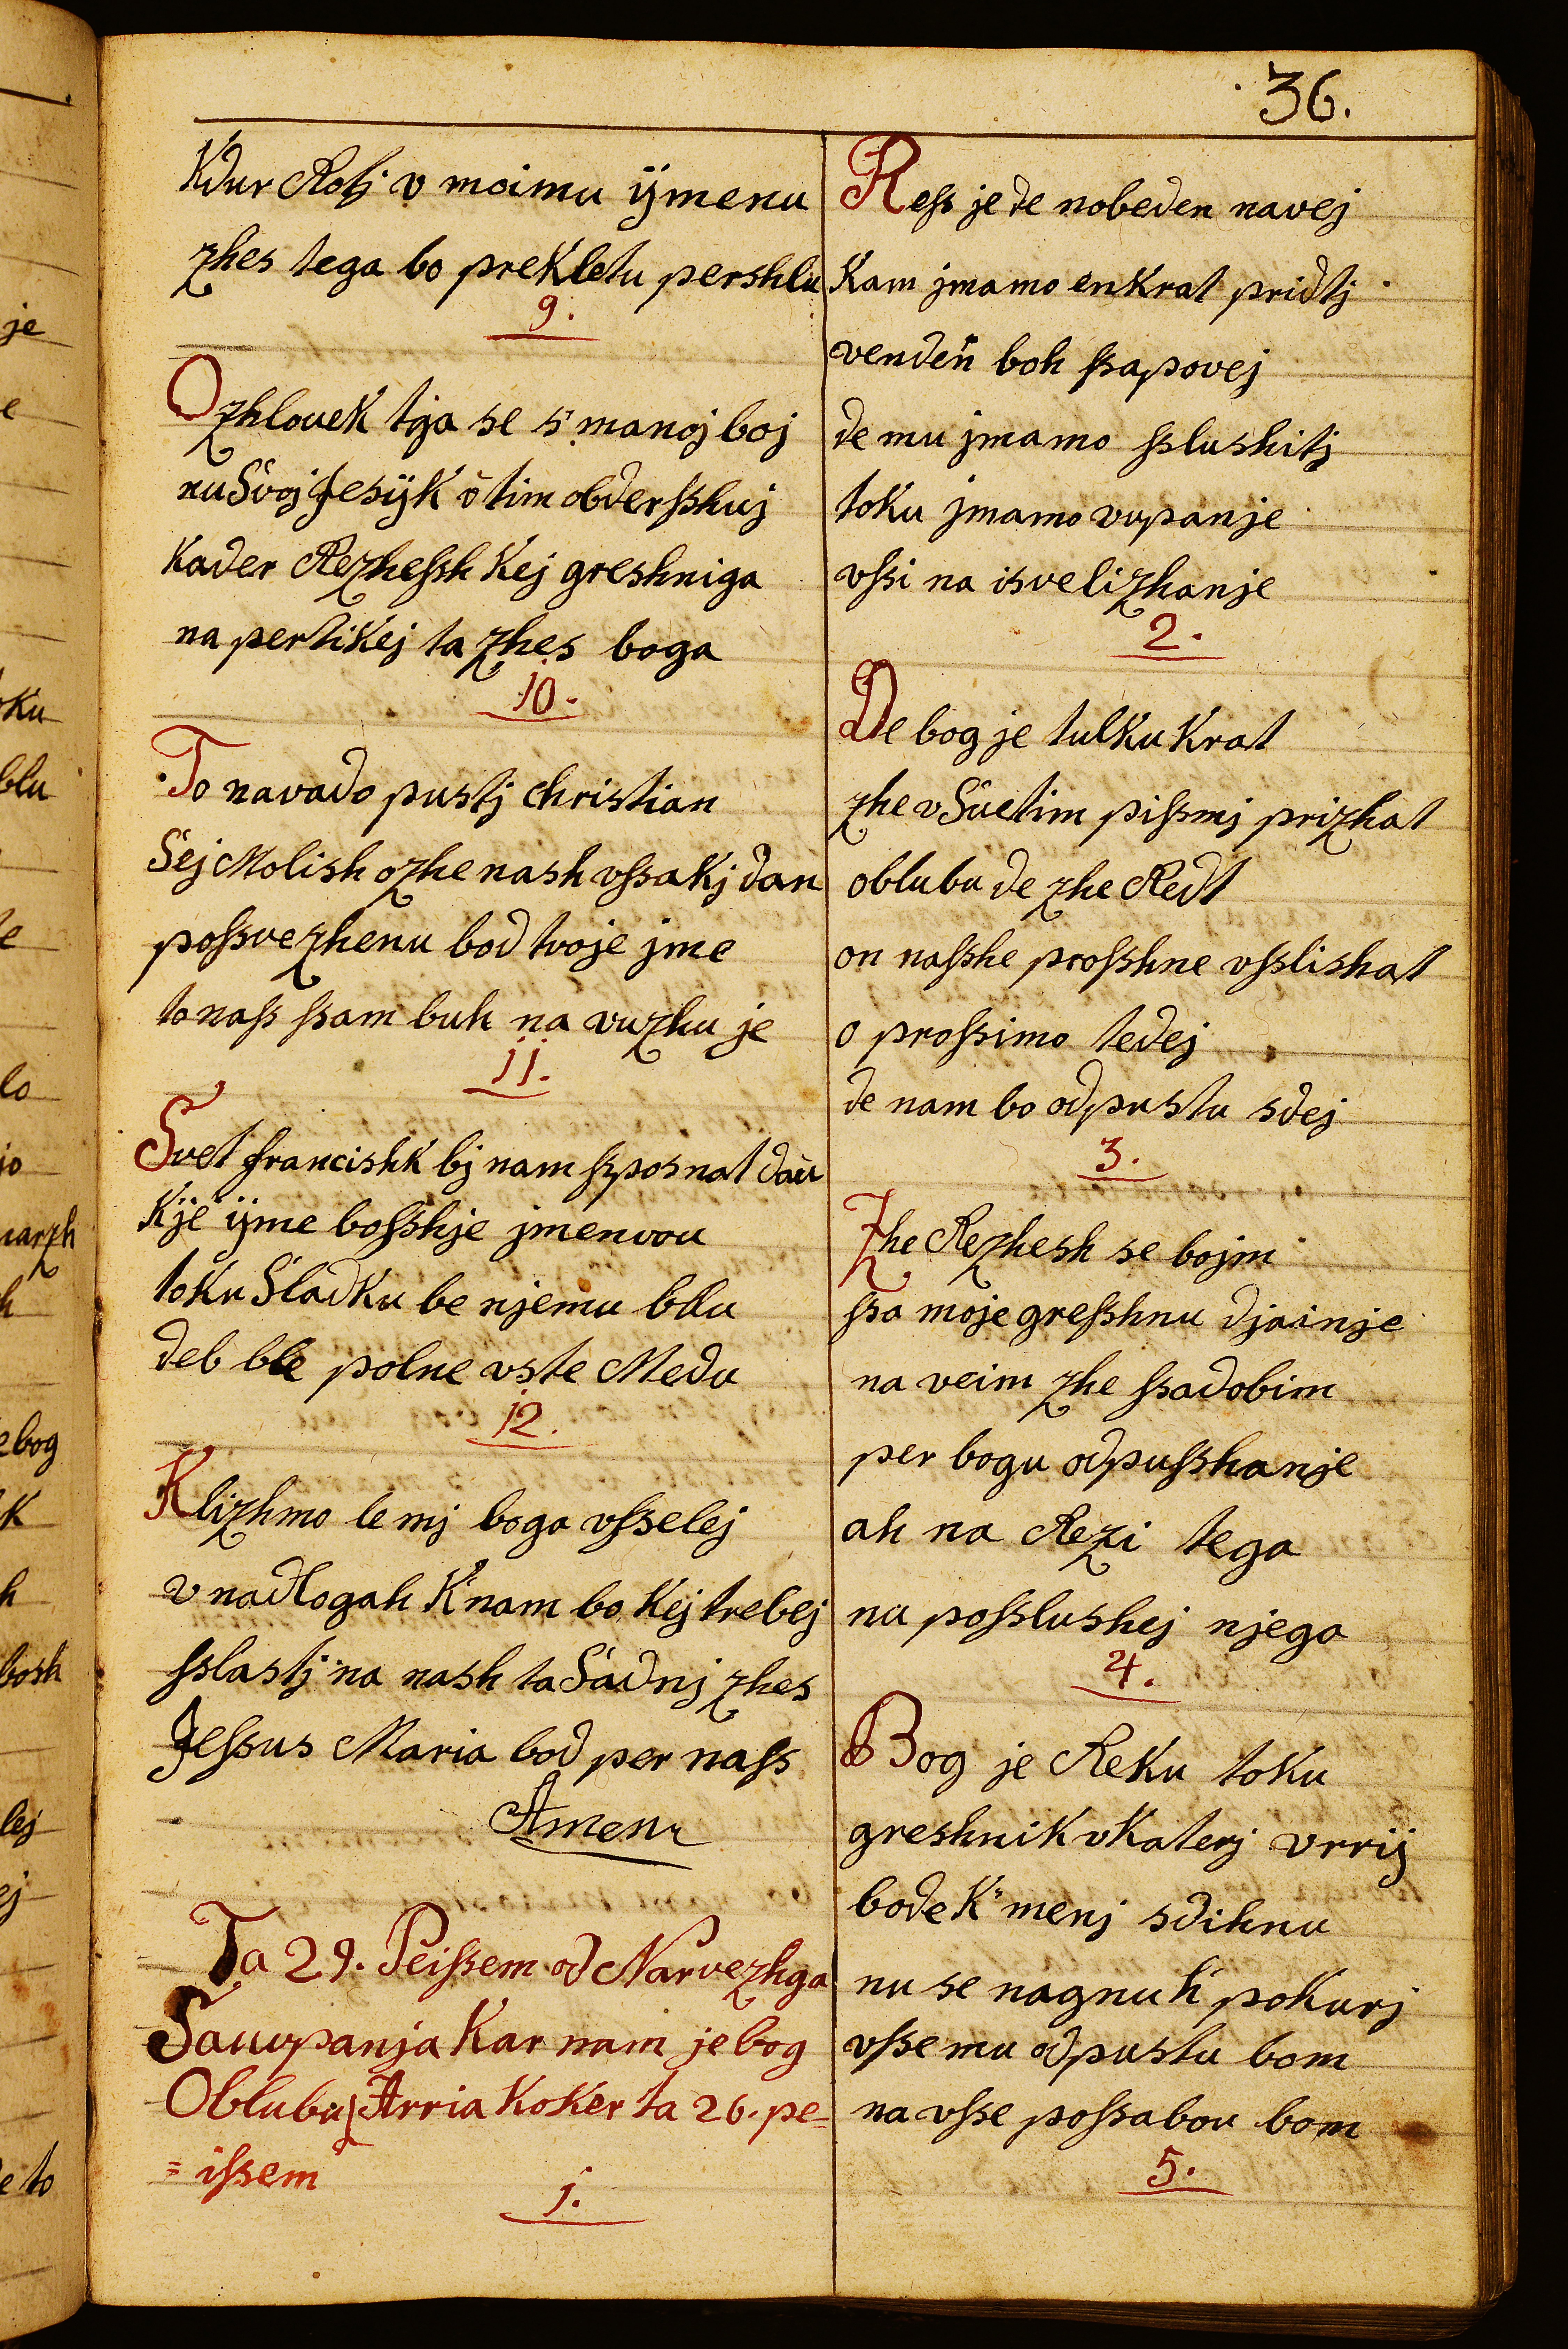 36.
Kdur Rotj v moimu ÿmenu
zhes tega bo prekletu pershlu
9.
O zhlovek tga se s' manoj boj
nu Svoj Jesÿk v tim obdersshuj
Kader Rezhessh Kej greshniga
na pertikej ta zhes boga
10.
To navado pustj christian
Sej Molish ozhe nash vssakj dan
possvezhenu bod tvoje jme
to nass ssam buh na vuzhu je
11.
Svet francishk bj nam sposnat dau
Kje ÿme bosshje jmenvou
toku Sladku be njemu blu
deb ble polne vste Medu
12.
Klizhmo le mj boga vsselej
v nadlogah K'nam bo Kej trebej
sslastj na nash ta Sadnj zhes
Jessus Maria bod per nass
Amen
Ta 29. Peissem od Narvezhga
Sauupanja Kar nam je bog
Oblubu Arria Koker ta 26. pe=
=issem
1.
Ress je de nobeden navej
Kam jmamo enkrat pridtj
venden boh ssapovej
de mu jmamo sslushitj
toku jmamo vupanje
vssi na isvelizhanje
2.
De bog je tulku Krat
zhe v Suetim pissmj prizhat
oblubu de zhe Redt
on nasshe prosshne vsslishat
o prossimo tedej
de nam bo odpustu sdej
3.
Zhe Rezhesh se bojm
ssa moje gresshnu djainje
na veim zhe ssadobim
per bogu odpusshanje
ah na Rezi tega
nu posslushej njega
4.
Bog je Reku toku
greshnik vKaterj vrrij
bode K' menj sdihnu
nu se nagnu h' pokurj
vsse mu odpustu bom
na vsse possabou bom
5.